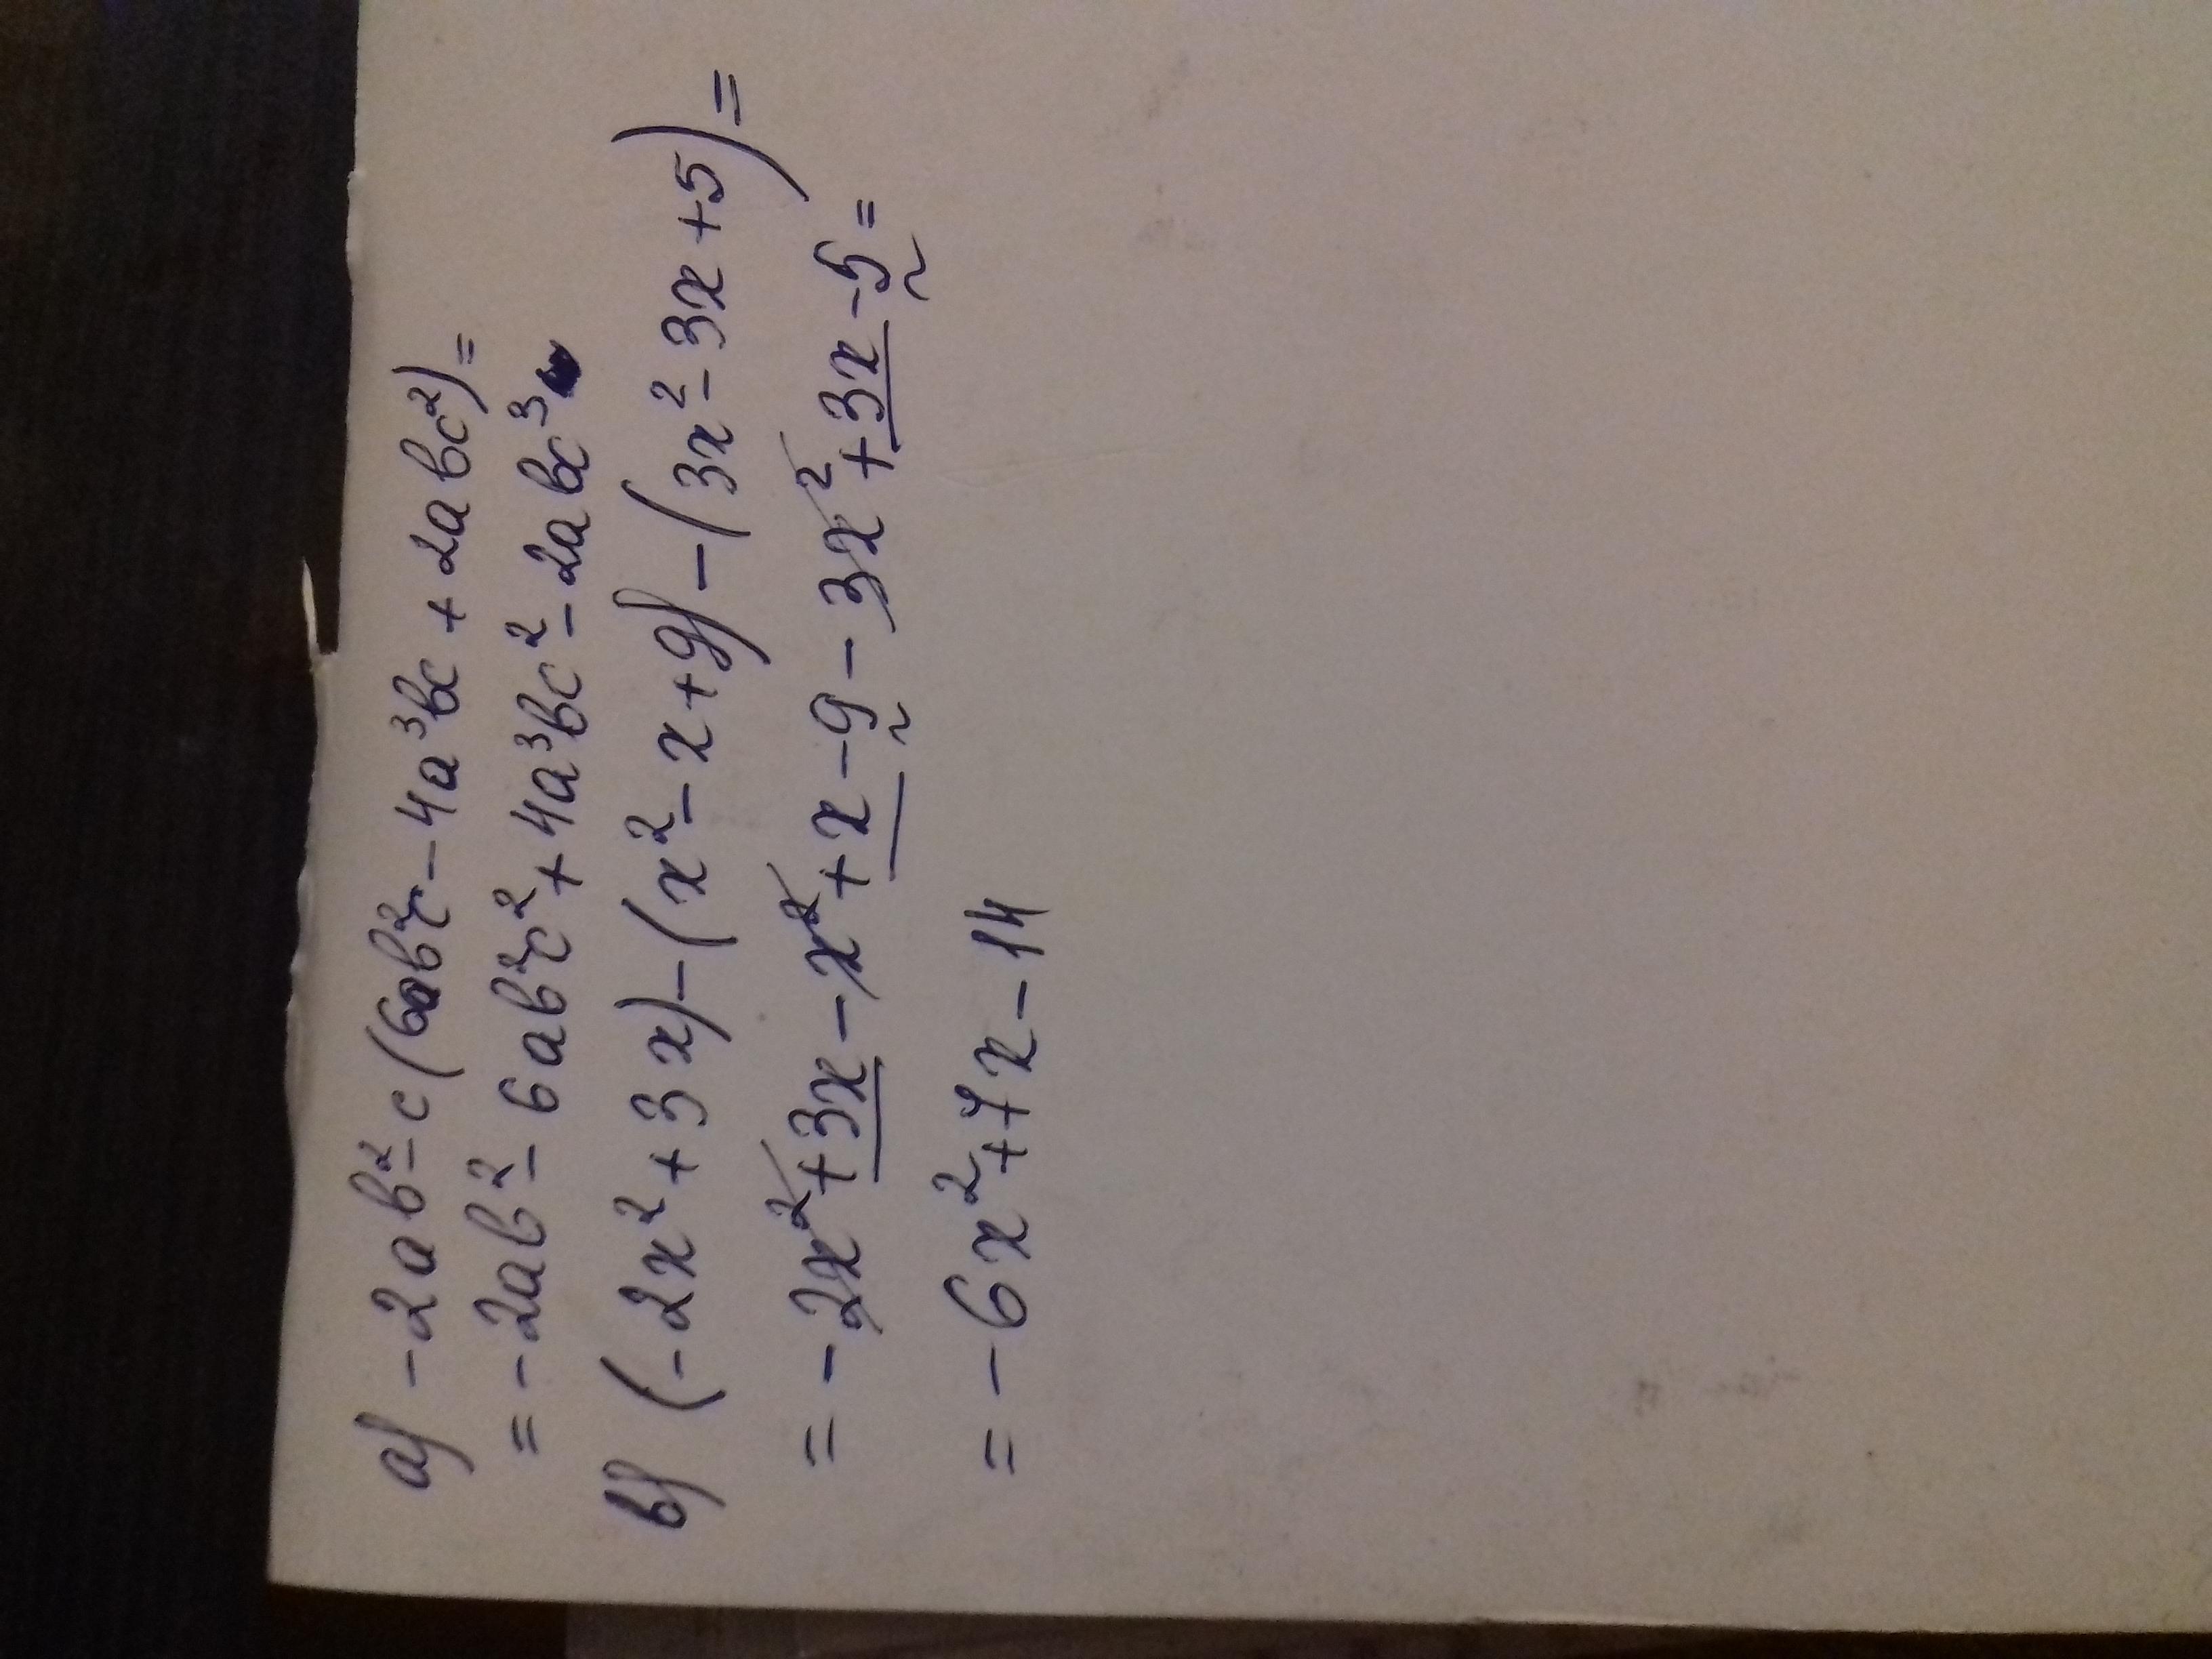 а) -2ab²-c(6ab²c-4a³bc+2abc²)=
=-2ab²-6ab²c²+4a³bc²-2abc³
в) (-2x²+3x)-(x²-x+9)-(3x²-3x+5)=
=-2x²+3x-x²+x-9-3x²+3x-5=
=-6x²+7x-14